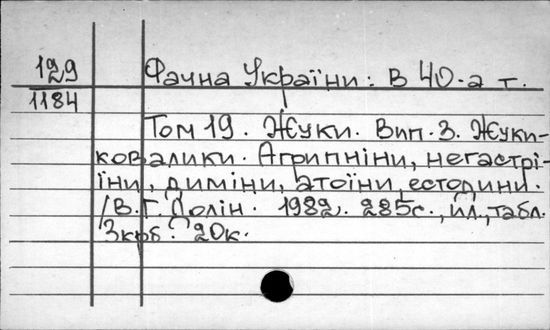 129
1184
Фауна України: В 40-а т.
Том 19. Жуки. Вип. 3. Жуки-
ковалики. Агрипніни, негастрі-
їни, диміни, атоїни, естодини.
/В.Г. Долін. 1982. 285с., ил., табл.
3крб. 20к.